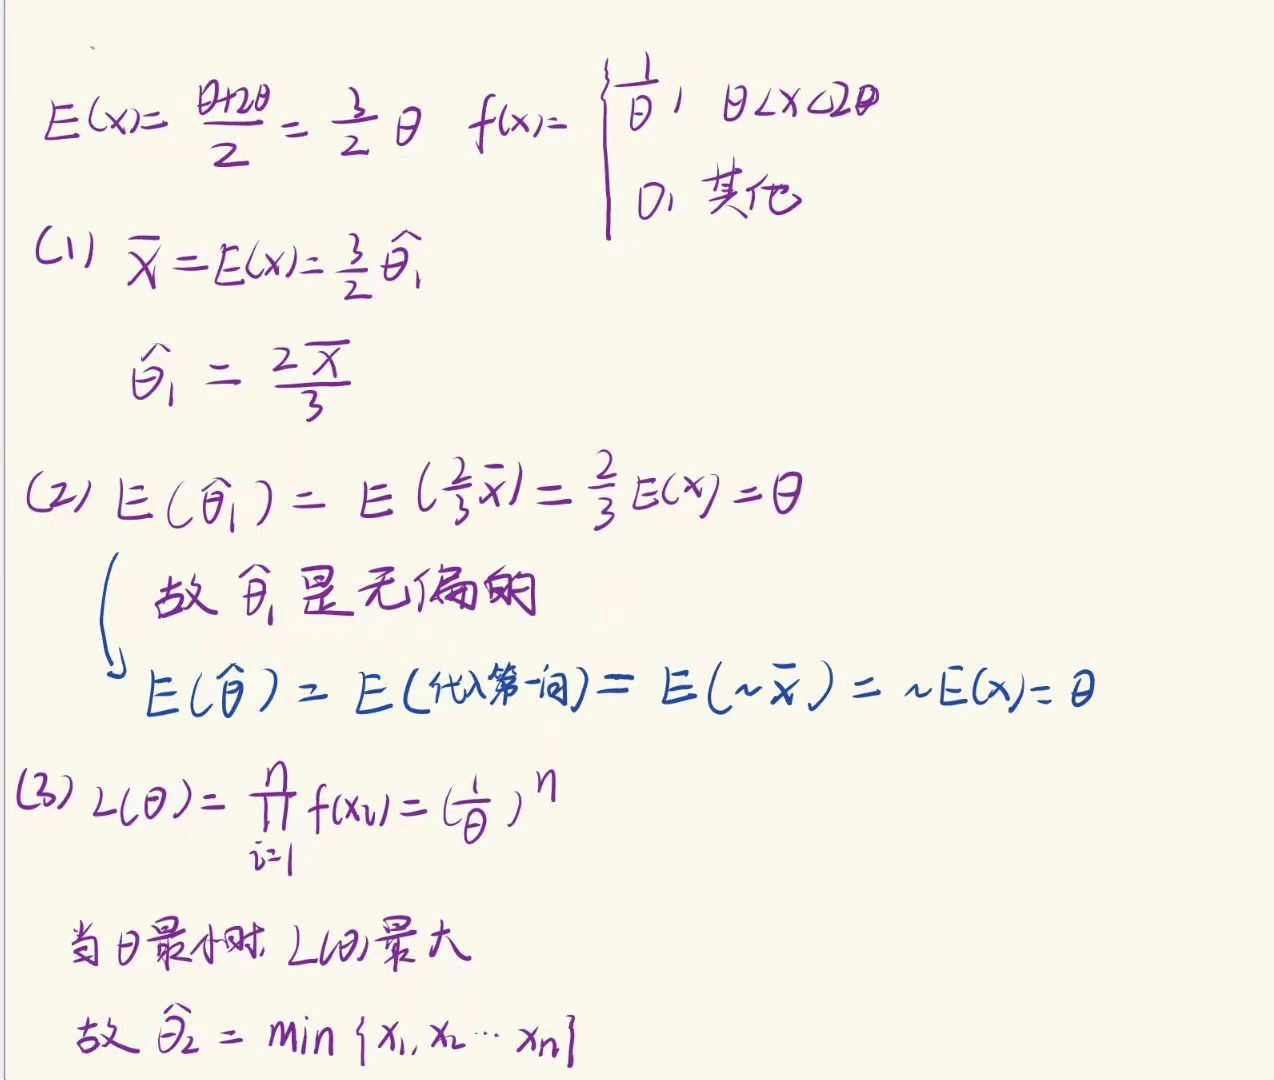 E(x)= (θ+2θ)/2 = 3/2 θ f(x)= { 1/θ, θ<x<2θ
0, 其他
(1) X̄ = E(x) = 3/2 θ̂₁
θ̂₁ = 2X̄/3
(2) E(θ̂₁) = E(2/3 x̄) = 2/3 E(x) = θ
故 θ̂₁ 是无偏的
E(θ̂) = E(代入第一问) = E(~x̄) = ~E(x) = θ
(3) L(θ) = ∏ⁿᵢ₌₁ f(xᵢ) = (1/θ)ⁿ
当θ最小时 L(θ)最大
故 θ̂₂ = min {x₁, x₂ ··· xₙ}